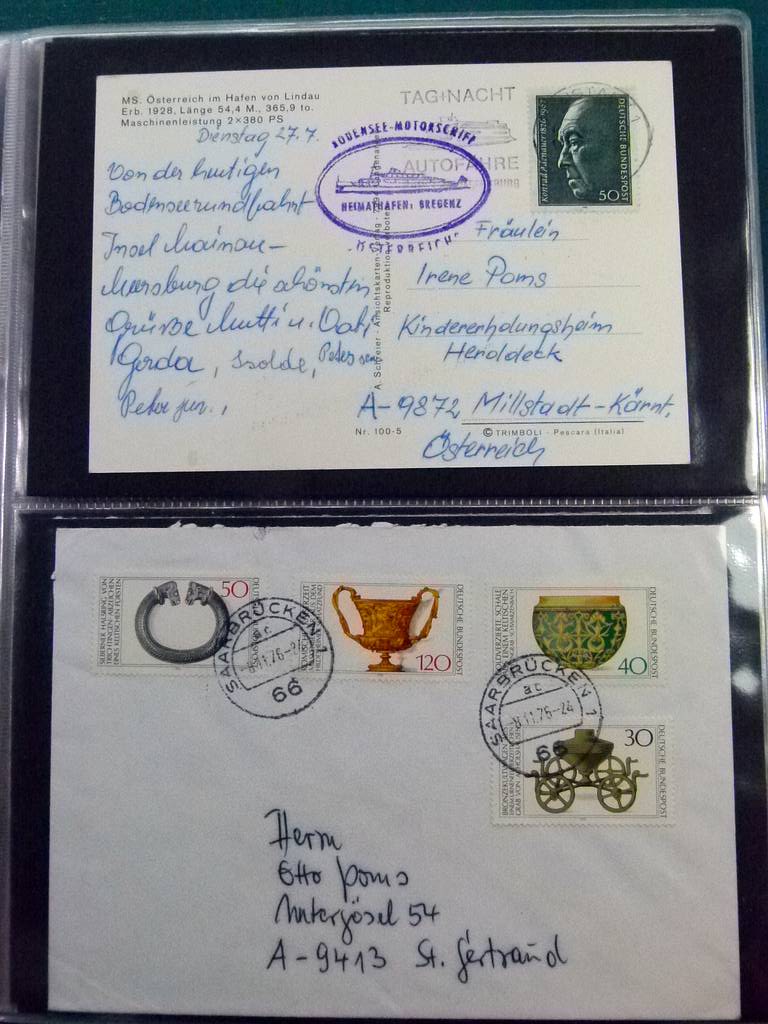 MS. Österreich im Hafen von Lindau
Erb. 1928, Länge 54,4 M., 365,9 to.
Maschinenleistung 2×380 PS
Dienstag 27.7.
Von der heutigen
Bodenseerundfahrt
Insel Mainau –
Meersburg die schönsten
Grüße Mutti u. Vati
Gerda, Isolde, Peter sen
Peter jun.,
TAG+NACHT
AUTOFÄHRE
BODENSEE-MOTORSCHIFF
HEIMATHAFEN: BREGENZ
ÖSTERREICH
Konrad Adenauer 1876-1967
DEUTSCHE BUNDESPOST
50
A. Schreier - Ansichtskarten
Reproduktion verboten
Fräulein
Irene Poms
Kindererholungsheim
Heroldeck
A-9872 Millstadt-Kärnt.
Österreich
Nr. 100-5
© TRIMBOLI - Pescara (Italia)
SILBERNER HALSRING VON
TRICHTINGEN · ABZEICHEN
EINES KELTISCHEN FÜRSTEN
50
DEUTSCHE
SAARBRÜCKEN 1
ac
8.11.76-24
66
120
DEUTSCHE BUNDESPOST
GOLDVERZIERTE SCHALE
KELTISCHEN
SCHWARZENBACH
40
DEUTSCHE BUNDESPOST
SAARBRÜCKEN 1
ac
8.11.76-24
66
BRONZEKULTWAGEN
GRAB VON
30
DEUTSCHE BUNDESPOST
Herrn
Otto Poms
Untergösel 54
A-9413 St. Gertraud